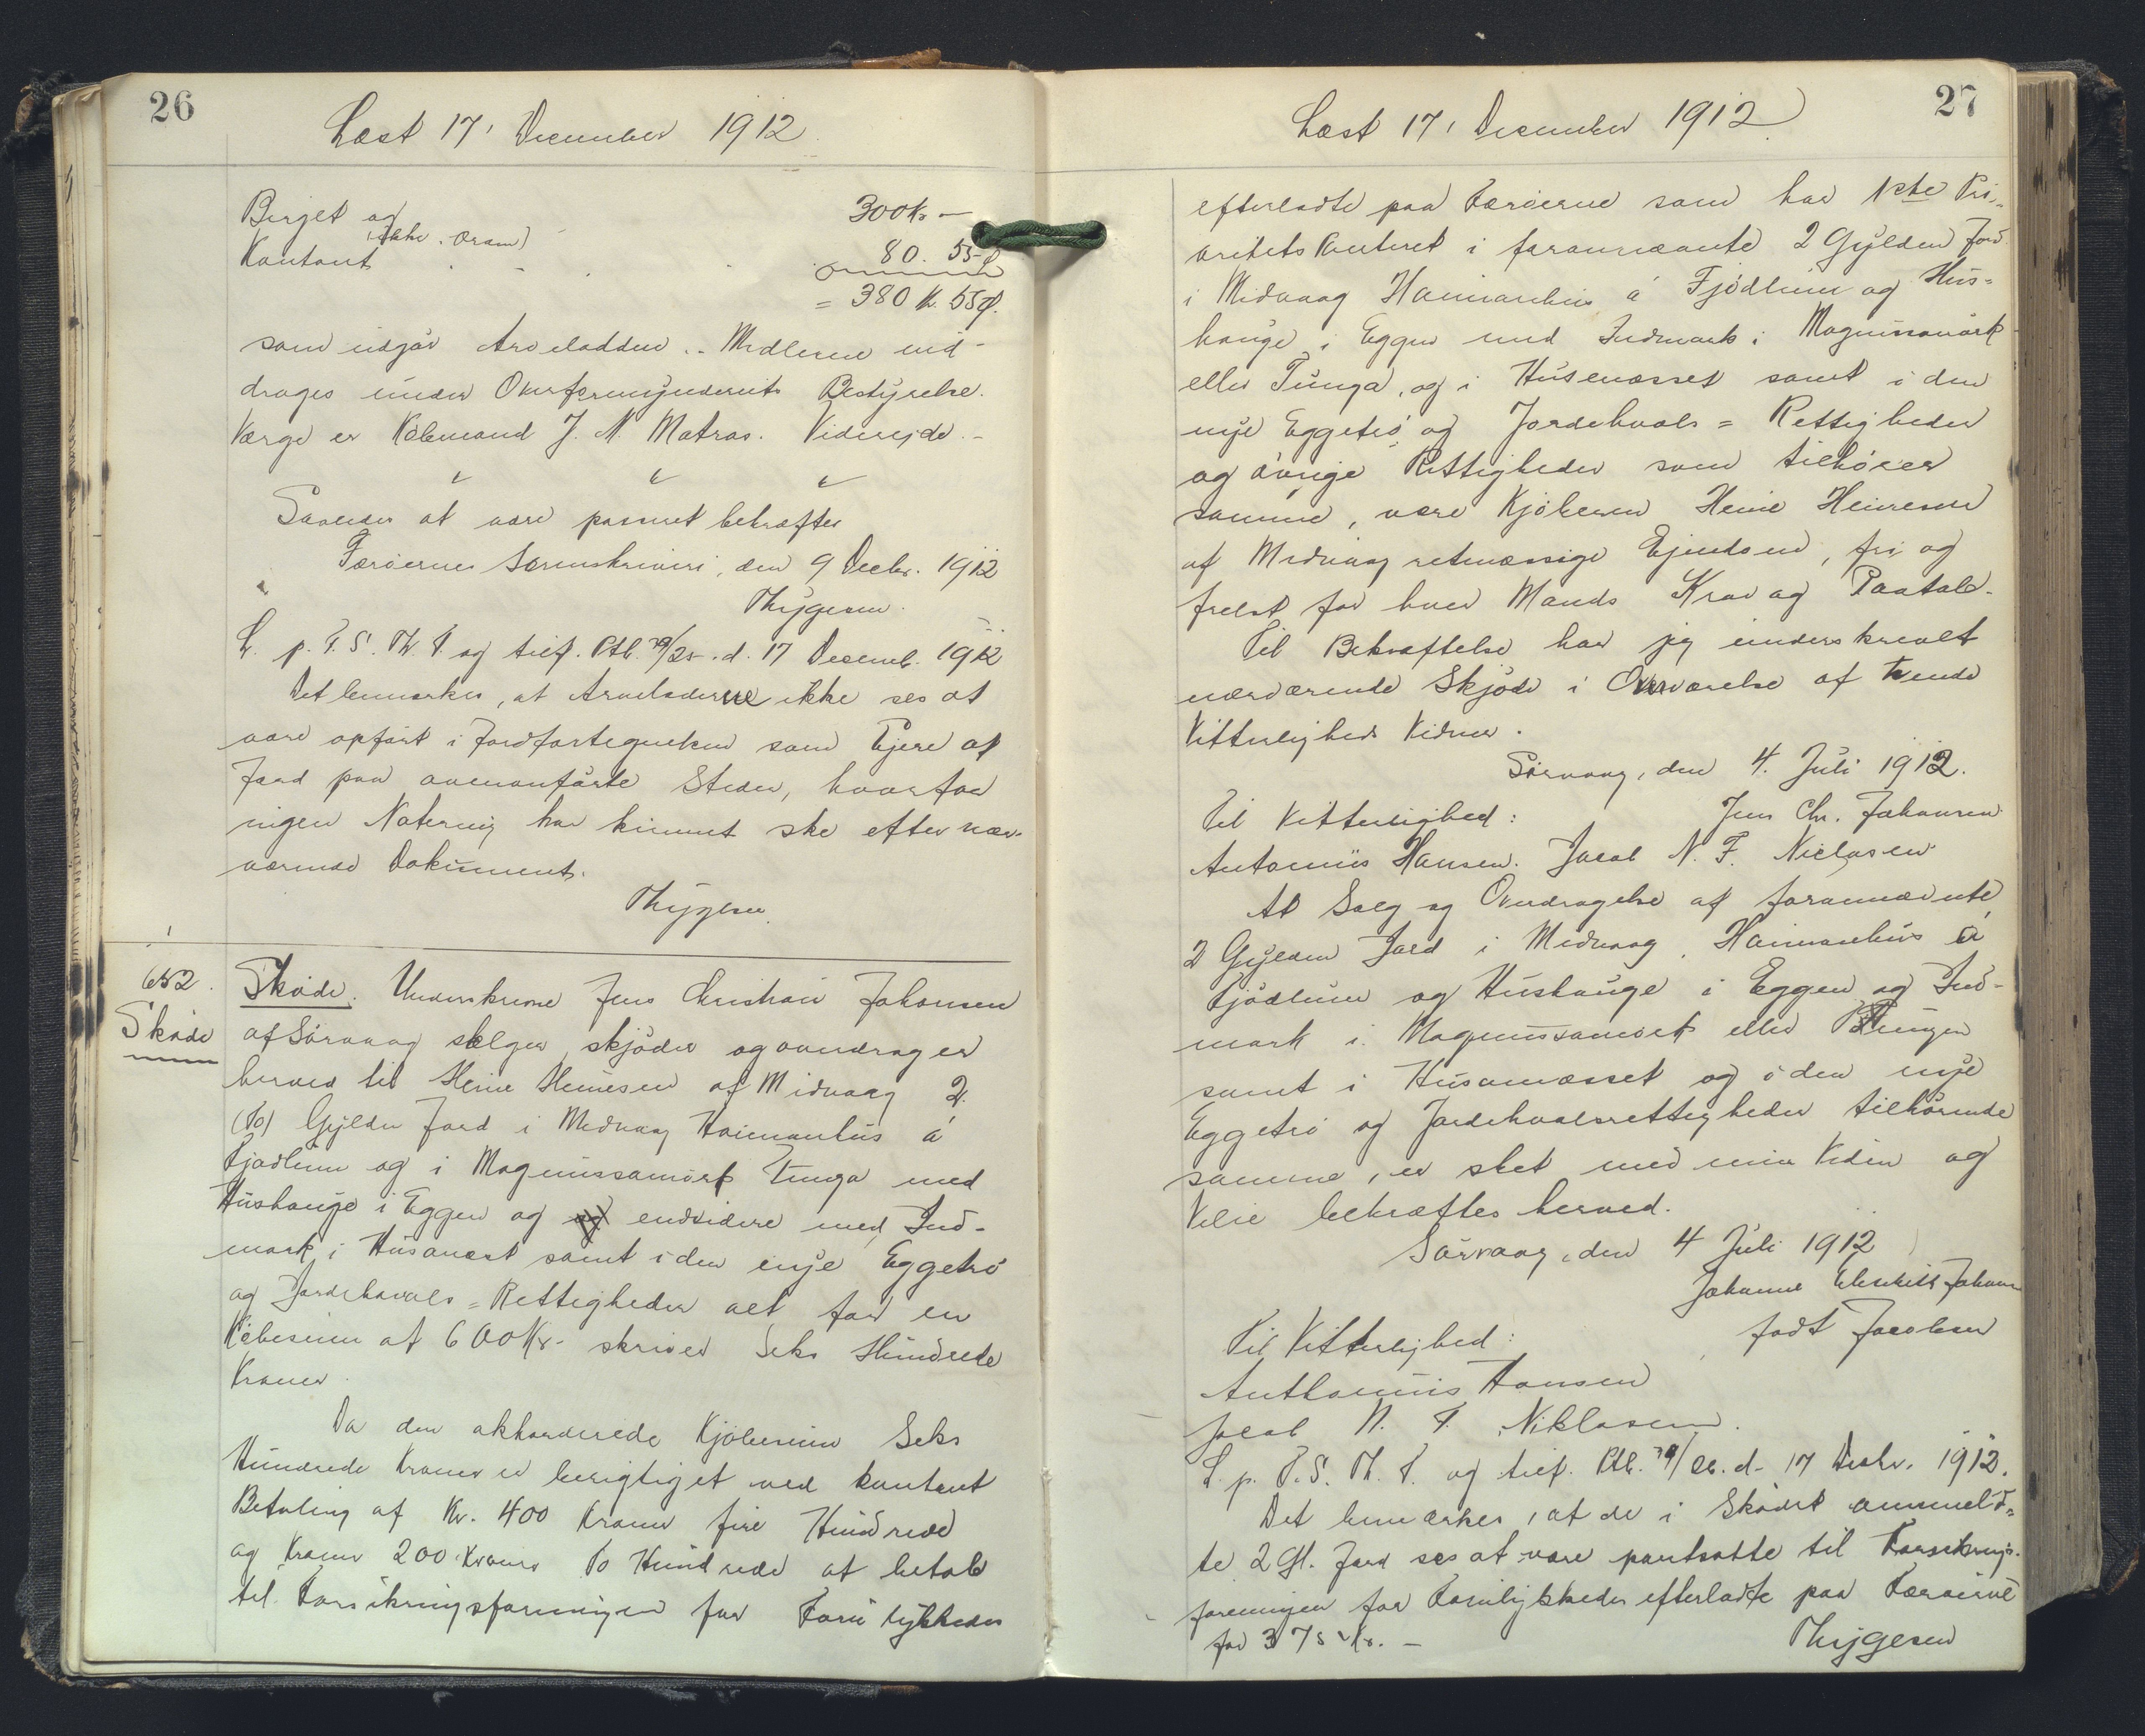 26
Læst 17' December 1912.
Berget og 300 Kr —
Kontant 80. 55
= 380 Kr. 55 ø.
som udgør Arvelodden. - Midlerne ind-
drages under Overformynderiets Bestyrelse.
Værge er Købmand J. N. Matras. Videreide. -
" " "
Saaledes at være passeret bekræftes
Færøernes Sorenskriveri, den 9 Decbr. 1912
Thygesen.
L. p. F. S. Th. P. og tilf. Ptb. d. 17 Decemb. 1912
Det bemærkes, at Arveladerne ikke ses at
være opført i Jordfortegnelsen som Ejere af
Jord paa ovenanførte Steder, hvorfor
ingen Notering har kunnet ske efter nær-
værende Dokument.
Thygesen.
652.
Skøde
Skøde. Underskrevne Jens Christian Johansen
af Sörvaag sælger, skjöder og overdrager
herved til Heine Heinesen af Midvaag 2.
(To) Gylden Jord i Midvaag Heimanhús á
Fjødlum og i Magnussamørk Tunga med
Hushauge i Eggen og endvidere med Ind-
mark i Húsanæst samt i den nye Eggetrö
og Jordehvals = Rettigheder alt for en
Købesum af 600 Kr. skriver Seks Hundrede
Kroner.
Da den akkorderede Kjöbesum Seks
Hundrede Kroner er berigtiget ved kontant
Betaling af Kr. 400 Kroner fire Hundrede
og Kroner 200 Kroner To Hundrede at betale
til Forsikringsforeningen for Forulykkedes
27
Læst 17' December 1912
efterladte paa Færøerne som har 1ste Pri-
oritets Panteret i forannævnte 2 Gylden Jord
i Midvaag Heimanhús á Fjödlum og Hus-
hauge i Eggen med Indmark i Magnussamørk
eller Tunga, og i Húsenæsset samt i den
nye Eggetrö og Jordehvals = Rettigheder
og øvrige Rettigheder som tilhörer
samme, være Kjöberen Heine Heinesen
af Midvaag retmæssige Ejendom, fri og
frelst for hver Mands Krav og Paatale.
Til Bekræftelse har jeg underskrevet
nærværende Skjöde i Overværelse af tvende
Vitterligheds Vidner.
Sörvaag, den 4. Juli 1912.
Til Vitterlighed: Jens Chr. Johansen
Antonius Hansen. Jacob N. F. Niclasen
At Salg og Overdragelse af forannævnte
2 Gylden Jord i Midvaag, Heimanhús á
Fjødlum og Hushauge i Eggen og Ind-
mark i Magnussamørk eller Tungen
samt i Husanæsset og i den nye
Eggetrö og Jordehvalsrettigheder tilhørende
samme, er sket med min Viden og
Vilie bekræftes herved.
Sörvaag, den 4 Juli 1912
Johanne Johans
født Jacobsen
Til Vitterlighed:
Anthonius Hansen
Jacob N. F. Niklasen.
L. p. F. S. Th. P. og tilf. Ptb. d. 17 Decbr. 1912.
Det bemærkes, at de i Skødet ommeld-
te 2 Gl. Jord ses at være pantsatte til Forsikrings-
foreningen for Forulykkedes efterladte paa Færøerne
for 375 Kr. —
Thygesen